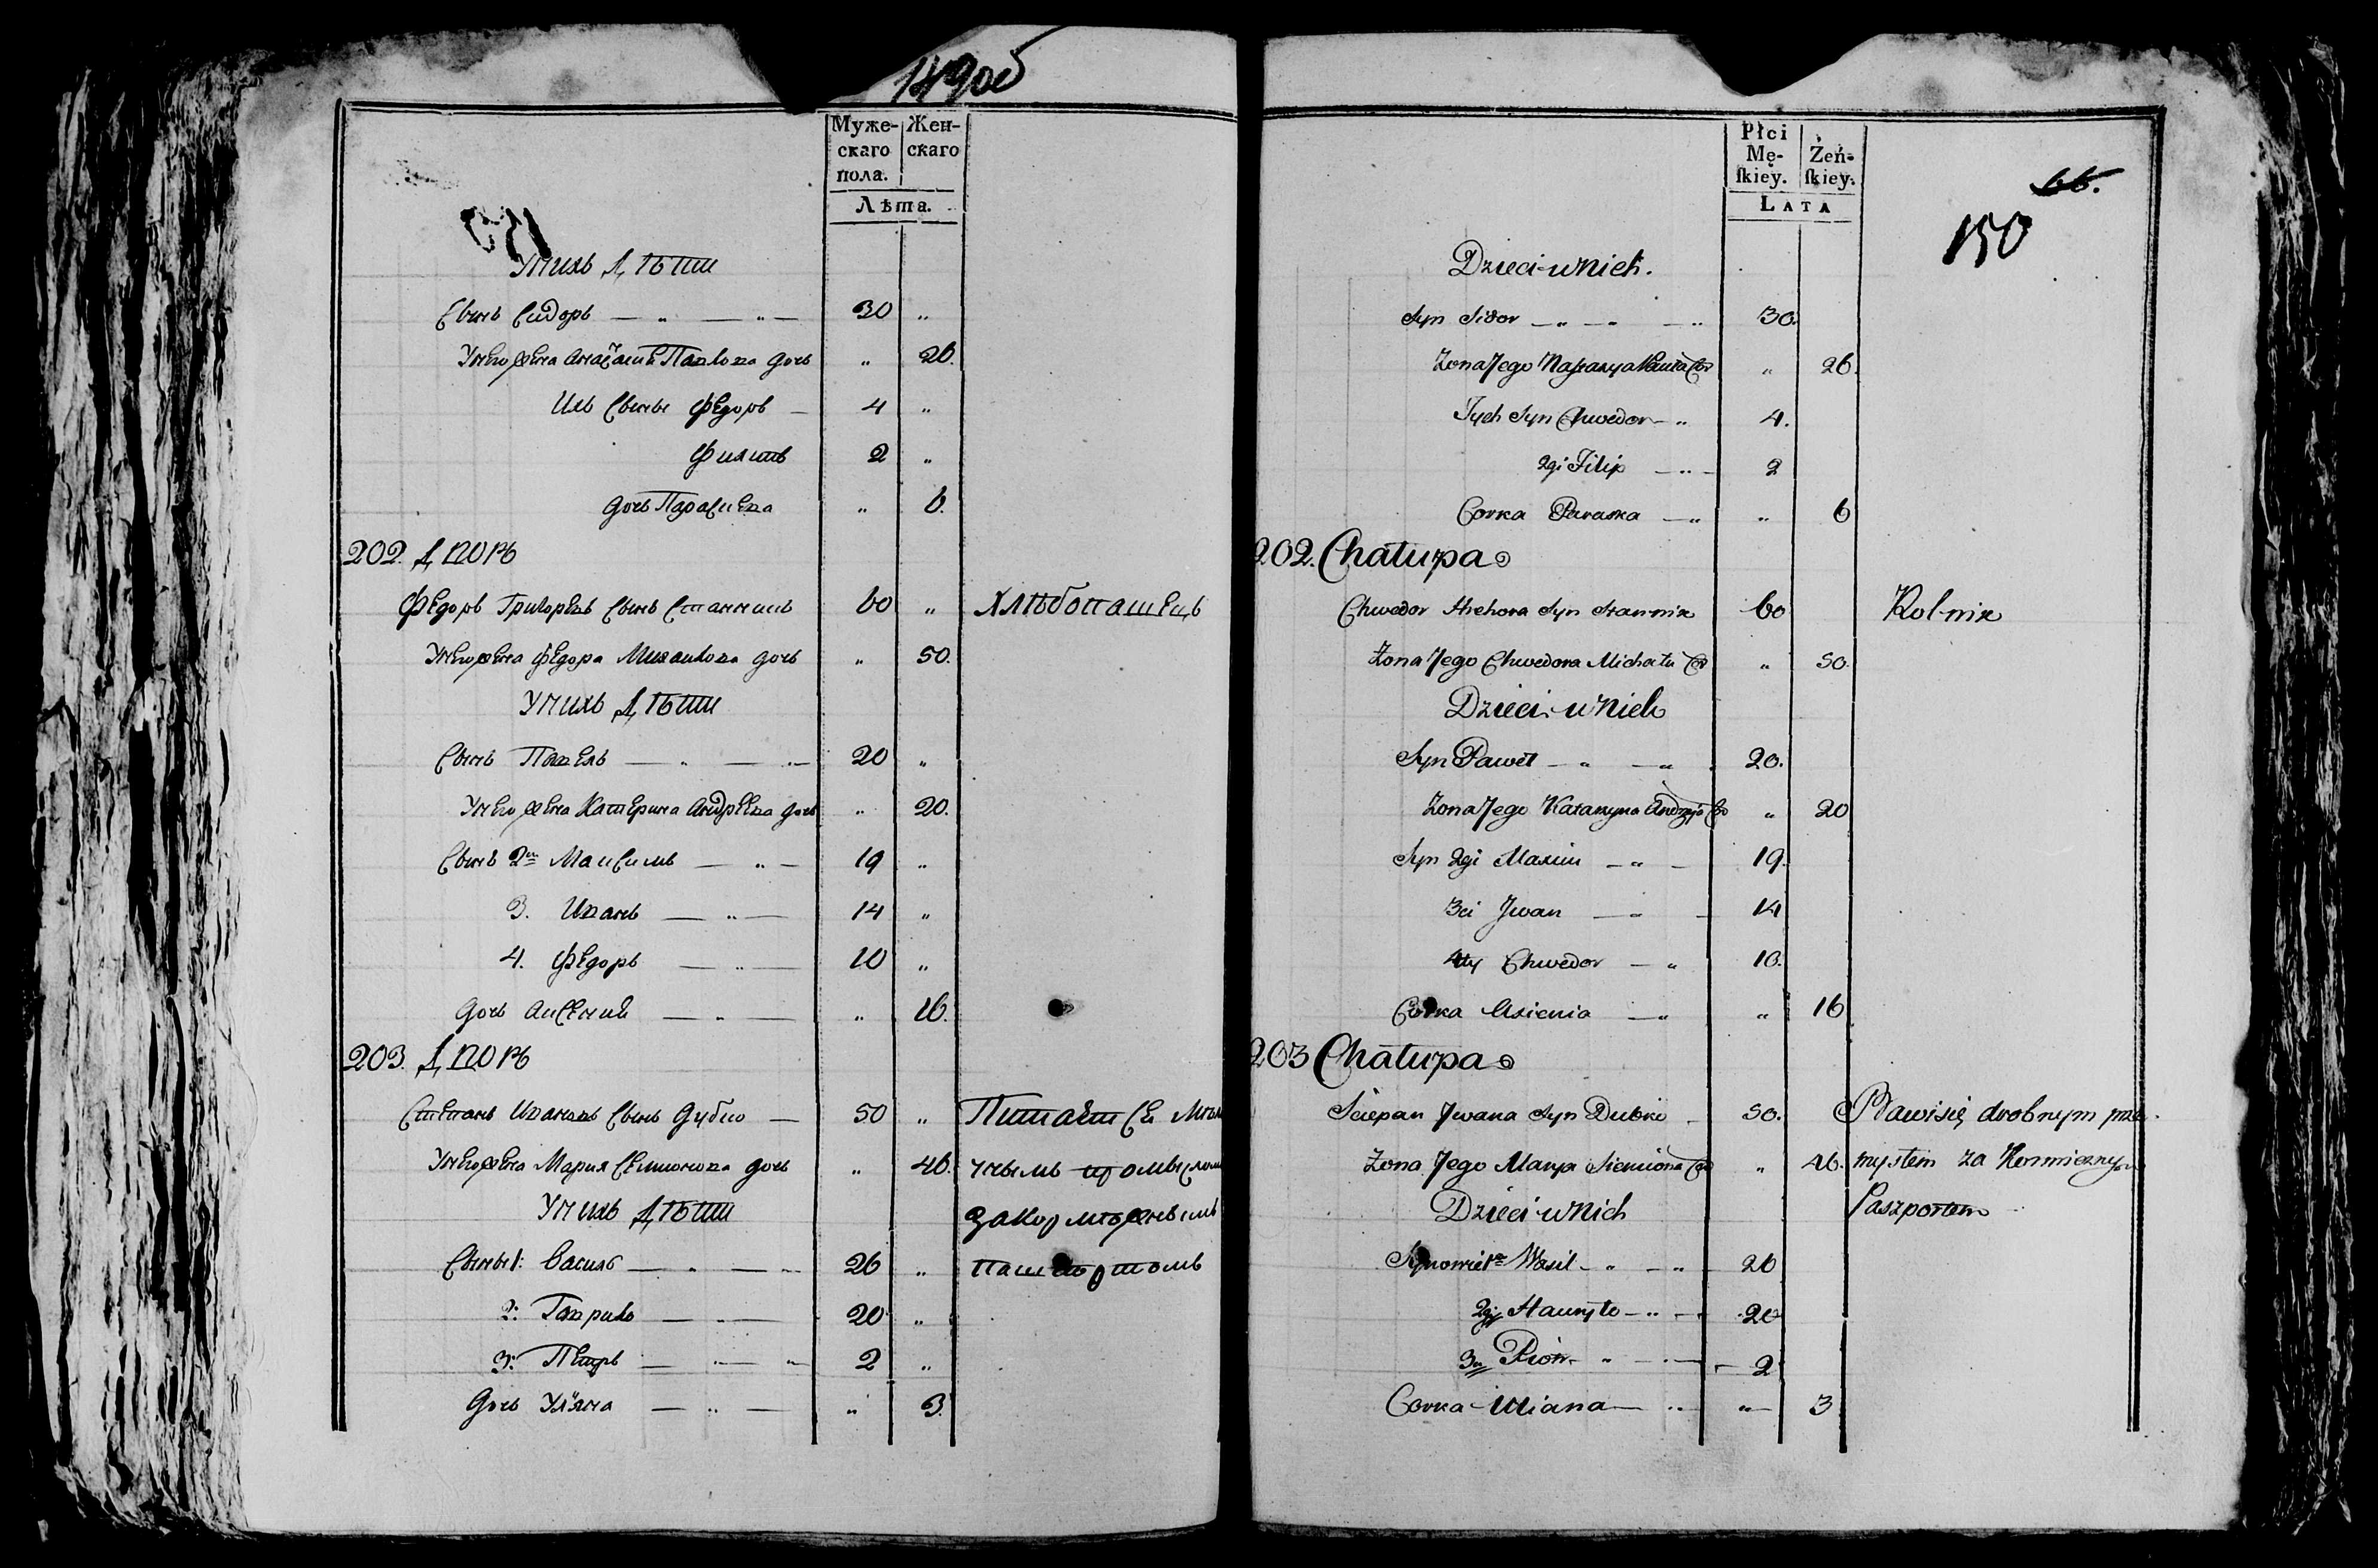 149об
Муже-
скаго
пола.
Жен-
скаго
Лѣта.
У нихъ Дѣти
Сынъ Сидоръ — „ — „ — 30 „
У него жена Анастасия Павлова дочь „ 26.
Ихъ Сыны Федоръ — 4 „
Филипъ 2 „
дочь Парасиева „ 6.
202. Дворъ
Федоръ Григорьевъ Сынъ Станникъ 60 „ Хлѣбопашецъ
У него жена Федора Михайлова дочь „ 50.
У нихъ Дѣти
Сынъ Павелъ — „ — „ — 20 „
У него жена Катерина Андреева дочь „ 20.
Сынъ 2й Максимъ — „ — 19 „
3. Иванъ — „ — 14 „
4. Федоръ — „ — 10 „
дочь Аксения — „ — „ 16.
203. Дворъ
Степанъ Ивановъ Сынъ Дубко — 50 „ Питается мѣло
У него жена Мария Семионова дочь „ 46. чнымъ промысломъ
У нихъ Дѣти за кормежнымъ
Сыны 1: Василь — „ — „ 26 „ пашпортомъ
2: Гаврило — „ — 20 „
3: Петръ — „ — „ 2 „
Дочь Уляна — „ — „ 3.
Płci
Mę-
ſkiey.
Żeń-
ſkiey.
LATA
66.
150
Dzieci u Nich.
Syn Sidor — „ — „ — „ 30.
Żona Jego Nastazya Pawła Cor „ 26.
Tych Syn Chwedor — „ 4.
2gi Filip — „ — 2
Corka Paraska — „ „ 6
202. Chałupa
Chwedor Hrehora Syn Stannik 60 Rolnik
Żona Jego Chwedora Michała Cor „ 50.
Dzieci u Nich
Syn Paweł — „ — „ 20.
Żona Jego Katarzyna Andrzeja Cor „ 20
Syn 2gi Maxim — „ — 19.
3ci Jwan — „ — 14
4ty Chwedor — „ 10.
Corka Axienia — „ „ 16
203 Chałupa
Sciepan Jwana Syn Dubko — 50. Bawi się drobnym prze
Żona Jego Marya Siemiona Cor „ 46. mysłem za Kormiecznym
Dzieci u Nich Paszportem
Synowie 1r Wasil — „ — „ — 26
2gi Hauryło — „ — 20
3ci Piotr — „ — „ — 2
Corka Uliana — „ „ 3